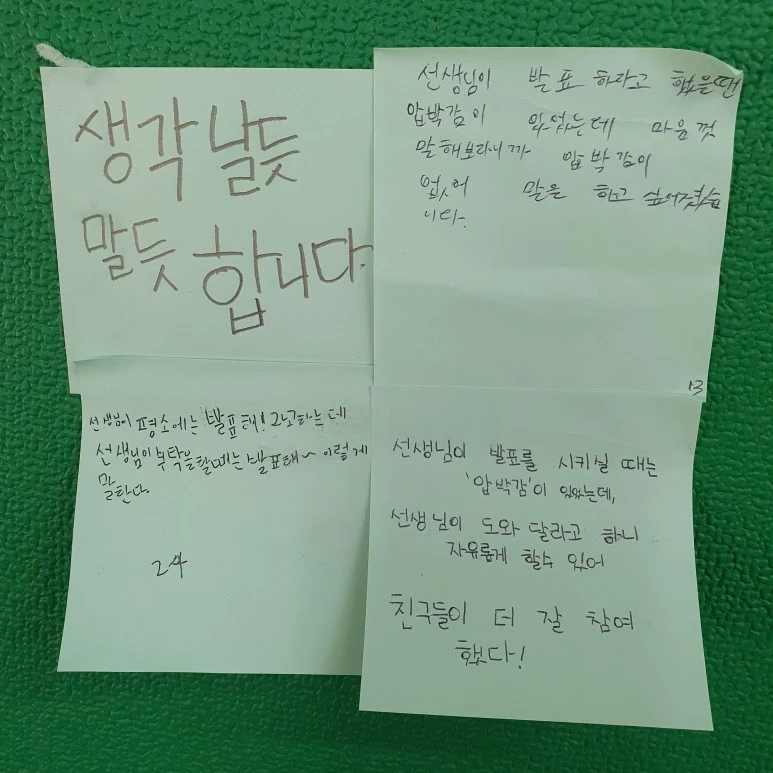 생각 날듯
말듯 합니다.
선생님이 발표 하라고 했을땐
압박감이 있었는데 마음껏
말해보라니까 압박감이
없어 말을 하고 싶어졌습
니다.
13
선생님이 평소에는 발표해! 라고하는데
선생님이 부탁을할때는 발표해~ 이렇게
말한다.
24
선생님이 발표를 시키실 때는
'압박감'이 있었는데,
선생님이 도와 달라고 하니
자유롭게 할수 있어
친구들이 더 잘 참여
했다!